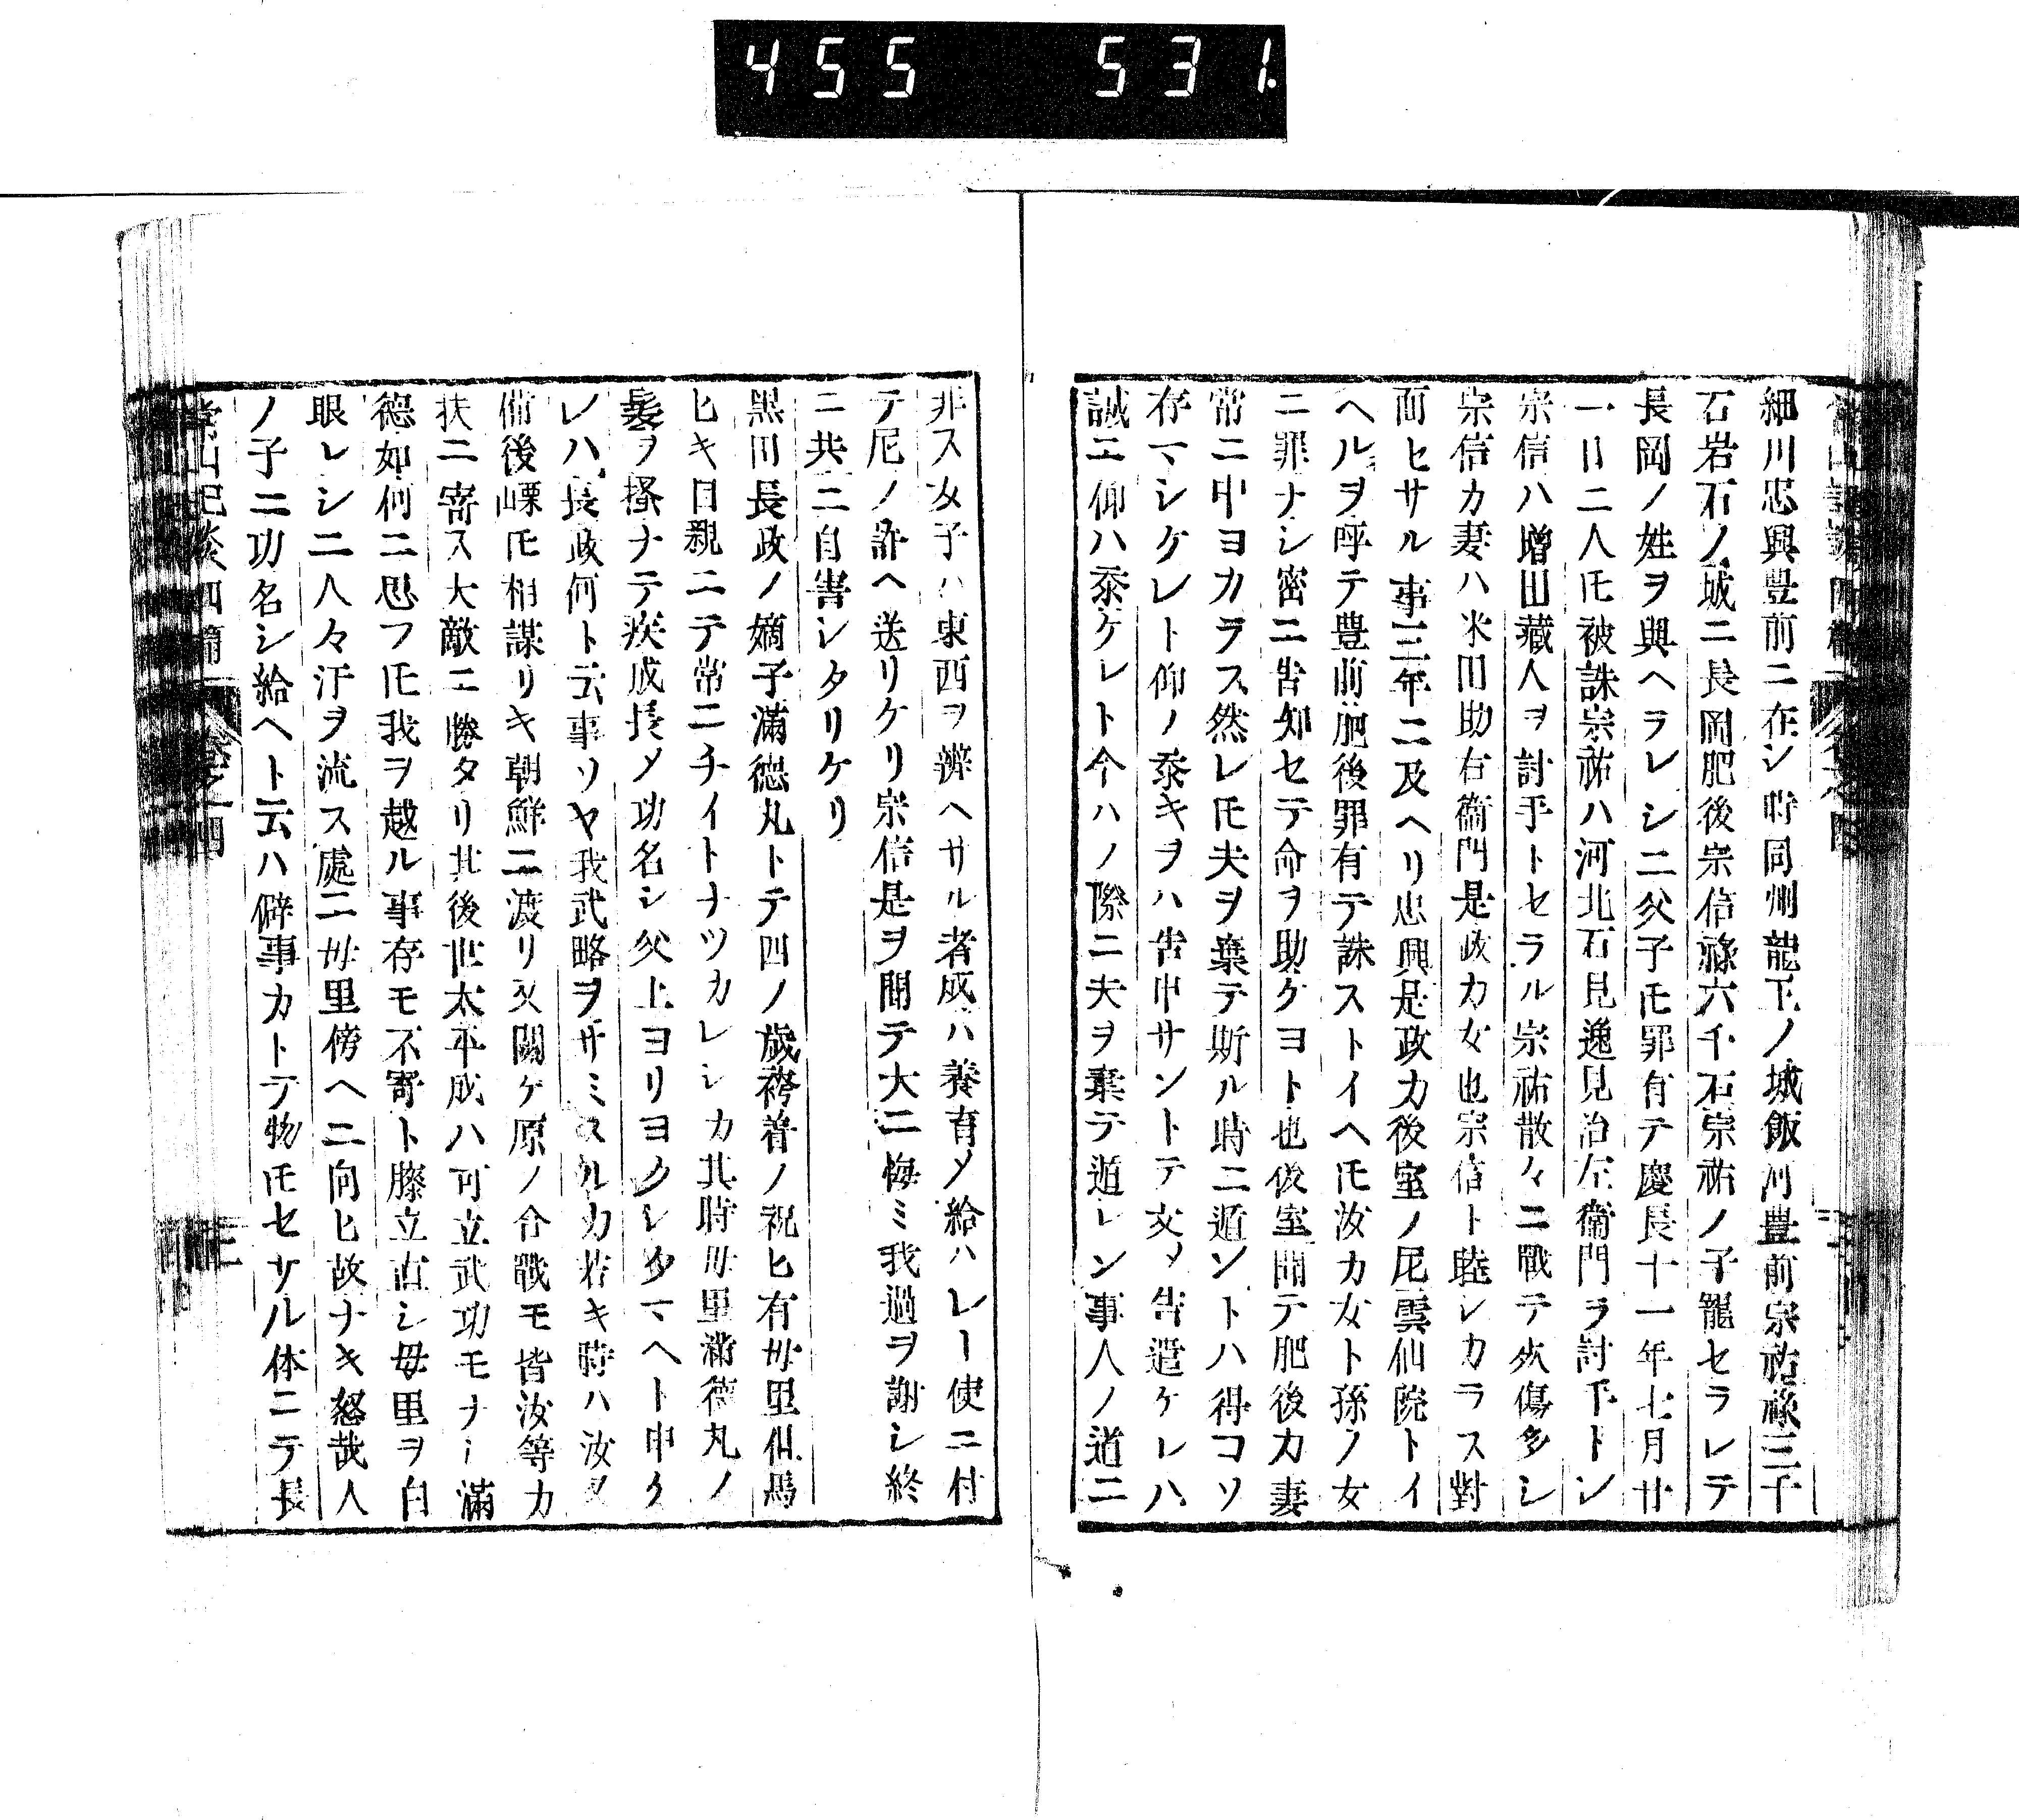 455 531.
細川忠興豊前ニ在シ時同州龍王ノ城飯河豊前宗祐祿三千
石岩石ノ城ニ長岡肥後宗信祿六千石宗祐ノ子籠セラレテ
長岡ノ姓ヲ與ヘラレシニ父子𪜈罪有テ慶長十一年七月廿
一日二人𪜈被誅宗祐ハ河北石見逸見治左衞門ヲ討手トシ
宗信ハ増田藏人ヲ討手トセラル宗祐散々ニ戰テ手傷多シ
宗信カ妻ハ米田助右衞門是政カ女也宗信ト睦シカラス對
面セサル事三年ニ及ヘリ忠興是政カ後室ノ尼雲仙院トイ
ヘルヲ呼テ豊前肥後罪有テ誅ストイヘ𪜈汝カ女ト孫ノ女
ニ罪ナシ密ニ告知セテ命ヲ助ケヨト也後室聞テ肥後カ妻
常ニ中ヨカラス然レ𪜈夫ヲ棄テ斯ル時ニ遁ントハ得コソ
存マシケレト仰ノ忝キヲハ告申サントテ文メ告遣ケレハ
誠ニ仰ハ忝ケレト今ハノ際ニ夫ヲ棄テ遁レン事人ノ道ニ
非ス女子ハ東西ヲ辨ヘサル者成ハ養育メ給ハレー使ニ付
テ尼ノ許ヘ送リケリ宗信是ヲ聞テ大ニ悔ミ我過ヲ謝シ終
ニ共ニ自害シタリケリ
黒田長政ノ嫡子滿德丸トテ四ノ歳袴着ノ祝ヒ有毋里但馬
ヒキ目親ニテ常ニチイトナツカレシカ其時毋里滿德丸ノ
髪ヲ搔ナテ疾成長メ功名シ父上ヨリヨクシタマヘト申ケ
レハ長政何ト云事ソヤ我武略ヲサミスルカ若キ時ハ汝ヲ
備後𪜈相謀リキ朝鮮ニ渡リ又關ケ原ノ合戰モ皆汝等カ
扶ニ寄ス大敵ニ勝タリ其後世太平成ハ可立武功モナシ滿
德如何ニ思フ𪜈我ヲ越ル事存モ不寄ト膝立直シ毋里ヲ白
眼レシニ人々汗ヲ流ス處ニ毋里傍ヘニ向ヒ故ナキ怒哉人
ノ子ニ功名シ給ヘト云ハ僻事カトテ物𪜈セサル体ニテ長
常山紀談四篇 卷之四 三